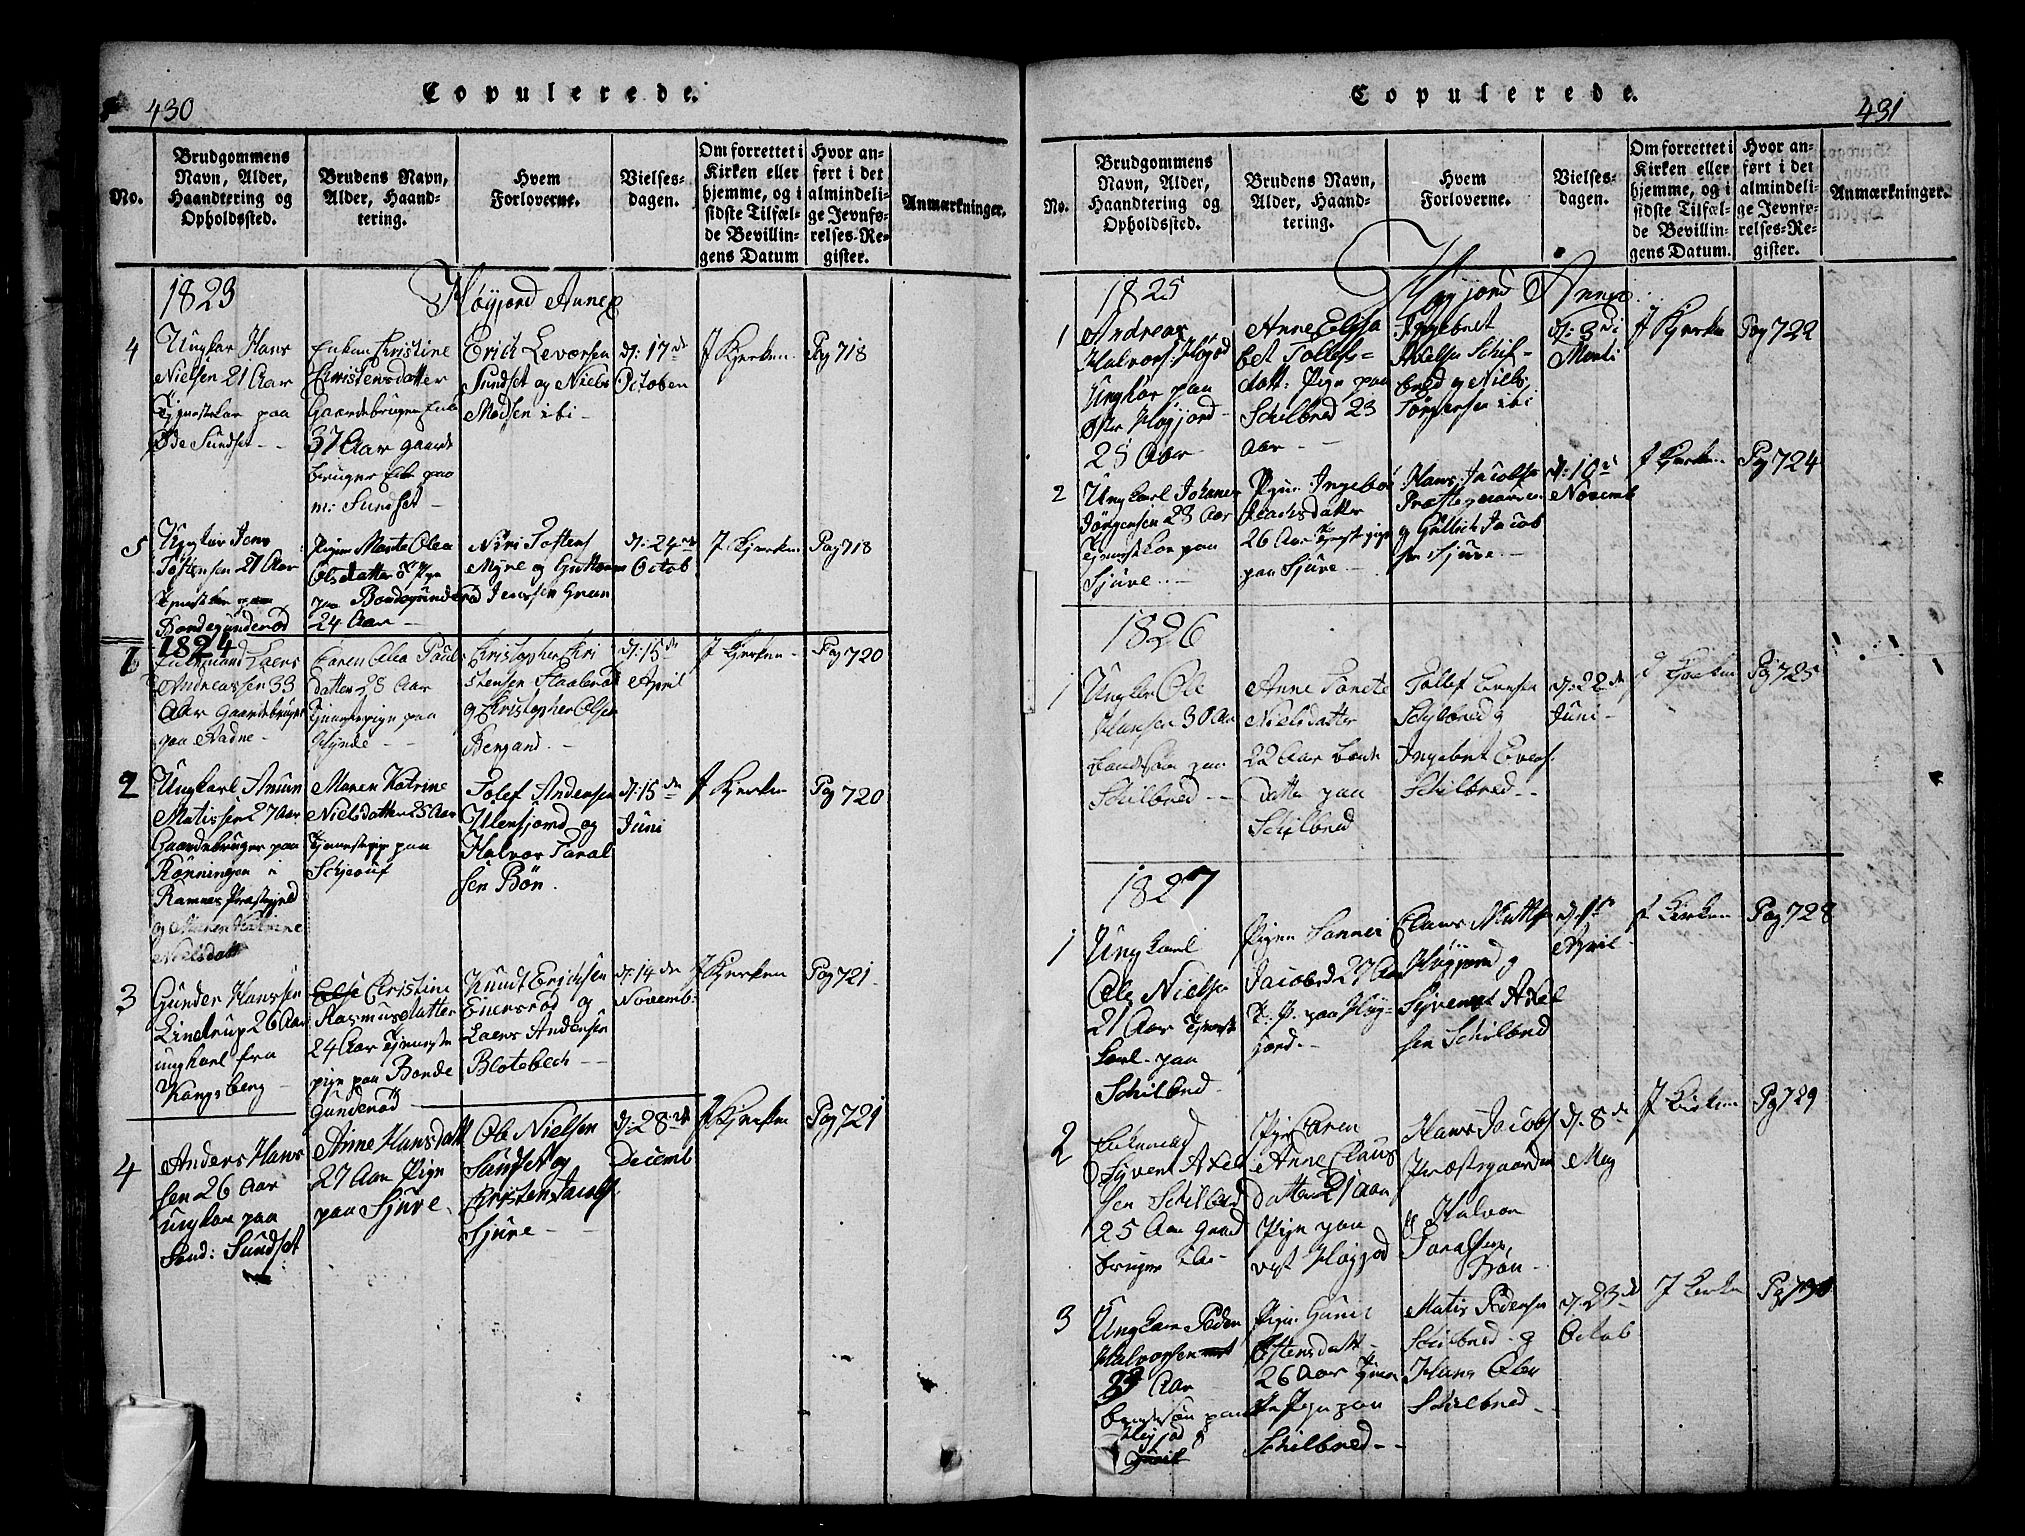 430
Copulerede.
No.
Brudgommens
Navn, Alder,
Haandtering og
Opholdssted.
Brudens Navn,
Alder, Haand-
tering.
Hvem
Forloverne.
Vielses-
dagen.
Om forrettet i
Kirken eller
hjemme, og i
sidste Tilfæl-
de Bevillin-
gens Datum
Hvor an-
ført i det
almindeli-
ge Jevnfø-
relses-Re-
gister.
Anmærkninger.
1823
Høyjord Annex
4
Ungkar Hans
Nielsen 21 Aar
Tjenestekar paa
Øde Sundset
Enken Christine
Christensdatter
Gaardebruger Enke
37 Aar gaard
bruger Enke paa
m: Sundset
Erich Leversen
Sundset og Niels
Madsen ibi
d: 17de
October
J Kjerken
Pag 718
5
Ungkar Jens
Tostensen 27 Aar
Tjenestekar paa
Bondegunderød
Pigen Marte Olea
Olsdatter
paa Bondegunderød
24 Aar
Niri Tostens
Myre og Guttorm
Jenssen Gran
d: 24de
Octob
J Kjerken
Pag 718
1824
1
Enkemand Laers
Andreassen 33
Aar Gaardebruger
paa Radne
Karen Olea Pauls
datter 28 Aar
Tjenestepige paa
Hynde
Christopher Chri
stensen Staalerød
og Christopher Olsen
Bergand
d: 15de
April
J Kjerken
Pag 720
2
Ungkarl Amun
Matissen 27 Aar
Gaardebruger paa
Rønningen i
Ramnes Præstegjeld
og Maren Katrine
Nielsdatt
Maren Katrine
Nielsdatter 25 Aar
Tjenestepige paa
Schjeauf
Tolef Andersen
Illensjord og
Halvor Taral
sen Bøn.
d: 15de
Juni
J Kjerken
Pag 720
3
Gunder Hanssen
Lindrup 26 Aar
ungkarl fra
Kongsberg
Else Christine
Rasmusdatter
24 Aar Tjeneste
pige paa Bonde
Gunderød
Knudt Erichsen
Einersrød og
Laers Andersen
Blotebech
d: 14de
Novemb:
J Kjerken
Pag 721
4
Anders Hans
sen 26 Aar
Ungkar paa
Sønd: Sundset
Anne Hansdatt
27 Aar Pige
paa Sjure
Ole Nielsen
Sundset og
Christen Jacobs
Sjure
d: 28de
Decemb
J Kjerken
Pag 721
431
Copulerede.
No.
Brudgommens
Navn, Alder,
Haandtering og
Opholdssted.
Brudens Navn,
Alder, Haand-
tering.
Hvem
Forloverne.
Vielses-
dagen.
Om forrettet i
Kirken eller
hjemme, og i
sidste Tilfæl-
de Bevillin-
gens Datum.
Hvor an-
ført i det
almindeli-
ge Jevnfø-
relses-Re-
gister.
Anmærkninger.
1825
Høyjord Annex
1
Andreas
Halvors: Høgjod
Ungkar paa
Øster Høyjord
25 Aar
Anne Elisa
bet Tollefs=
datt: Pige paa
Schilbred 23
aar
Ingebret
Axelsen Schil-
bred og Niels
Jørgensen ibi
d: 3di
Marti
J Kjerken
Pag 722
2
Ungkarl Johanes
Jørgensen 23 Aar
Tjenestekar paa
Sjure
Pigen Ingebor
Isachsdatter
26 Aar Tjenestepige
paa Sjure
Hans Jacobsen
Præstegaarden
og Gullich Jacob
sen Sjure
d: 10de
Novemb
J Kjerken
Pag 724
1826
1
Ungkar Ole
Hansen 30 Aar
Bondesøn paa
Schilbred
Anne Tonete
Nielsdatter
22 Aar bonde
datter paa
Schilbred
Tollef Evensen
Schilbred og
Ingebret Evens.
Schilbred
d: 22de
Juni
J Kjerken
Pag 725
1827
1
Ungkarl
Ole Nielsen
21 Aar Tjeneste
karl paa
Schilbred
Pigen
Jacobsd 27 Aar
T: P. paa Høy-
jord
Claus Matts
Høyjord og
Syvent Axel
sen Schilbred
d: 1ste
April
J Kirken
Pag 728
2
Enkemad
Syvent Axel
sen Schilbred
25 Aar gaard
bruger ibi
Pige Caren
Anne Claus
datter 21 aar
Pige paa
vest Høgjod
Hans Jacobs
Præstegaarden
og Halvor
Taralsen
Bøn
d. 8de
May
J Kirken
Pag 729
3
Ungkar Peder
Halvorsen
23 Aar
bondesøn paa
Høyjod og
Gunil
Pigen Gunil
Ostensdatt
26 Aar Tjene
ste Pige paa
Schilbred
Matis Pedersen
Schilbred og
Hans Olsen
Schilbred
d: 23de
Octob
J Kirken
Pag 730